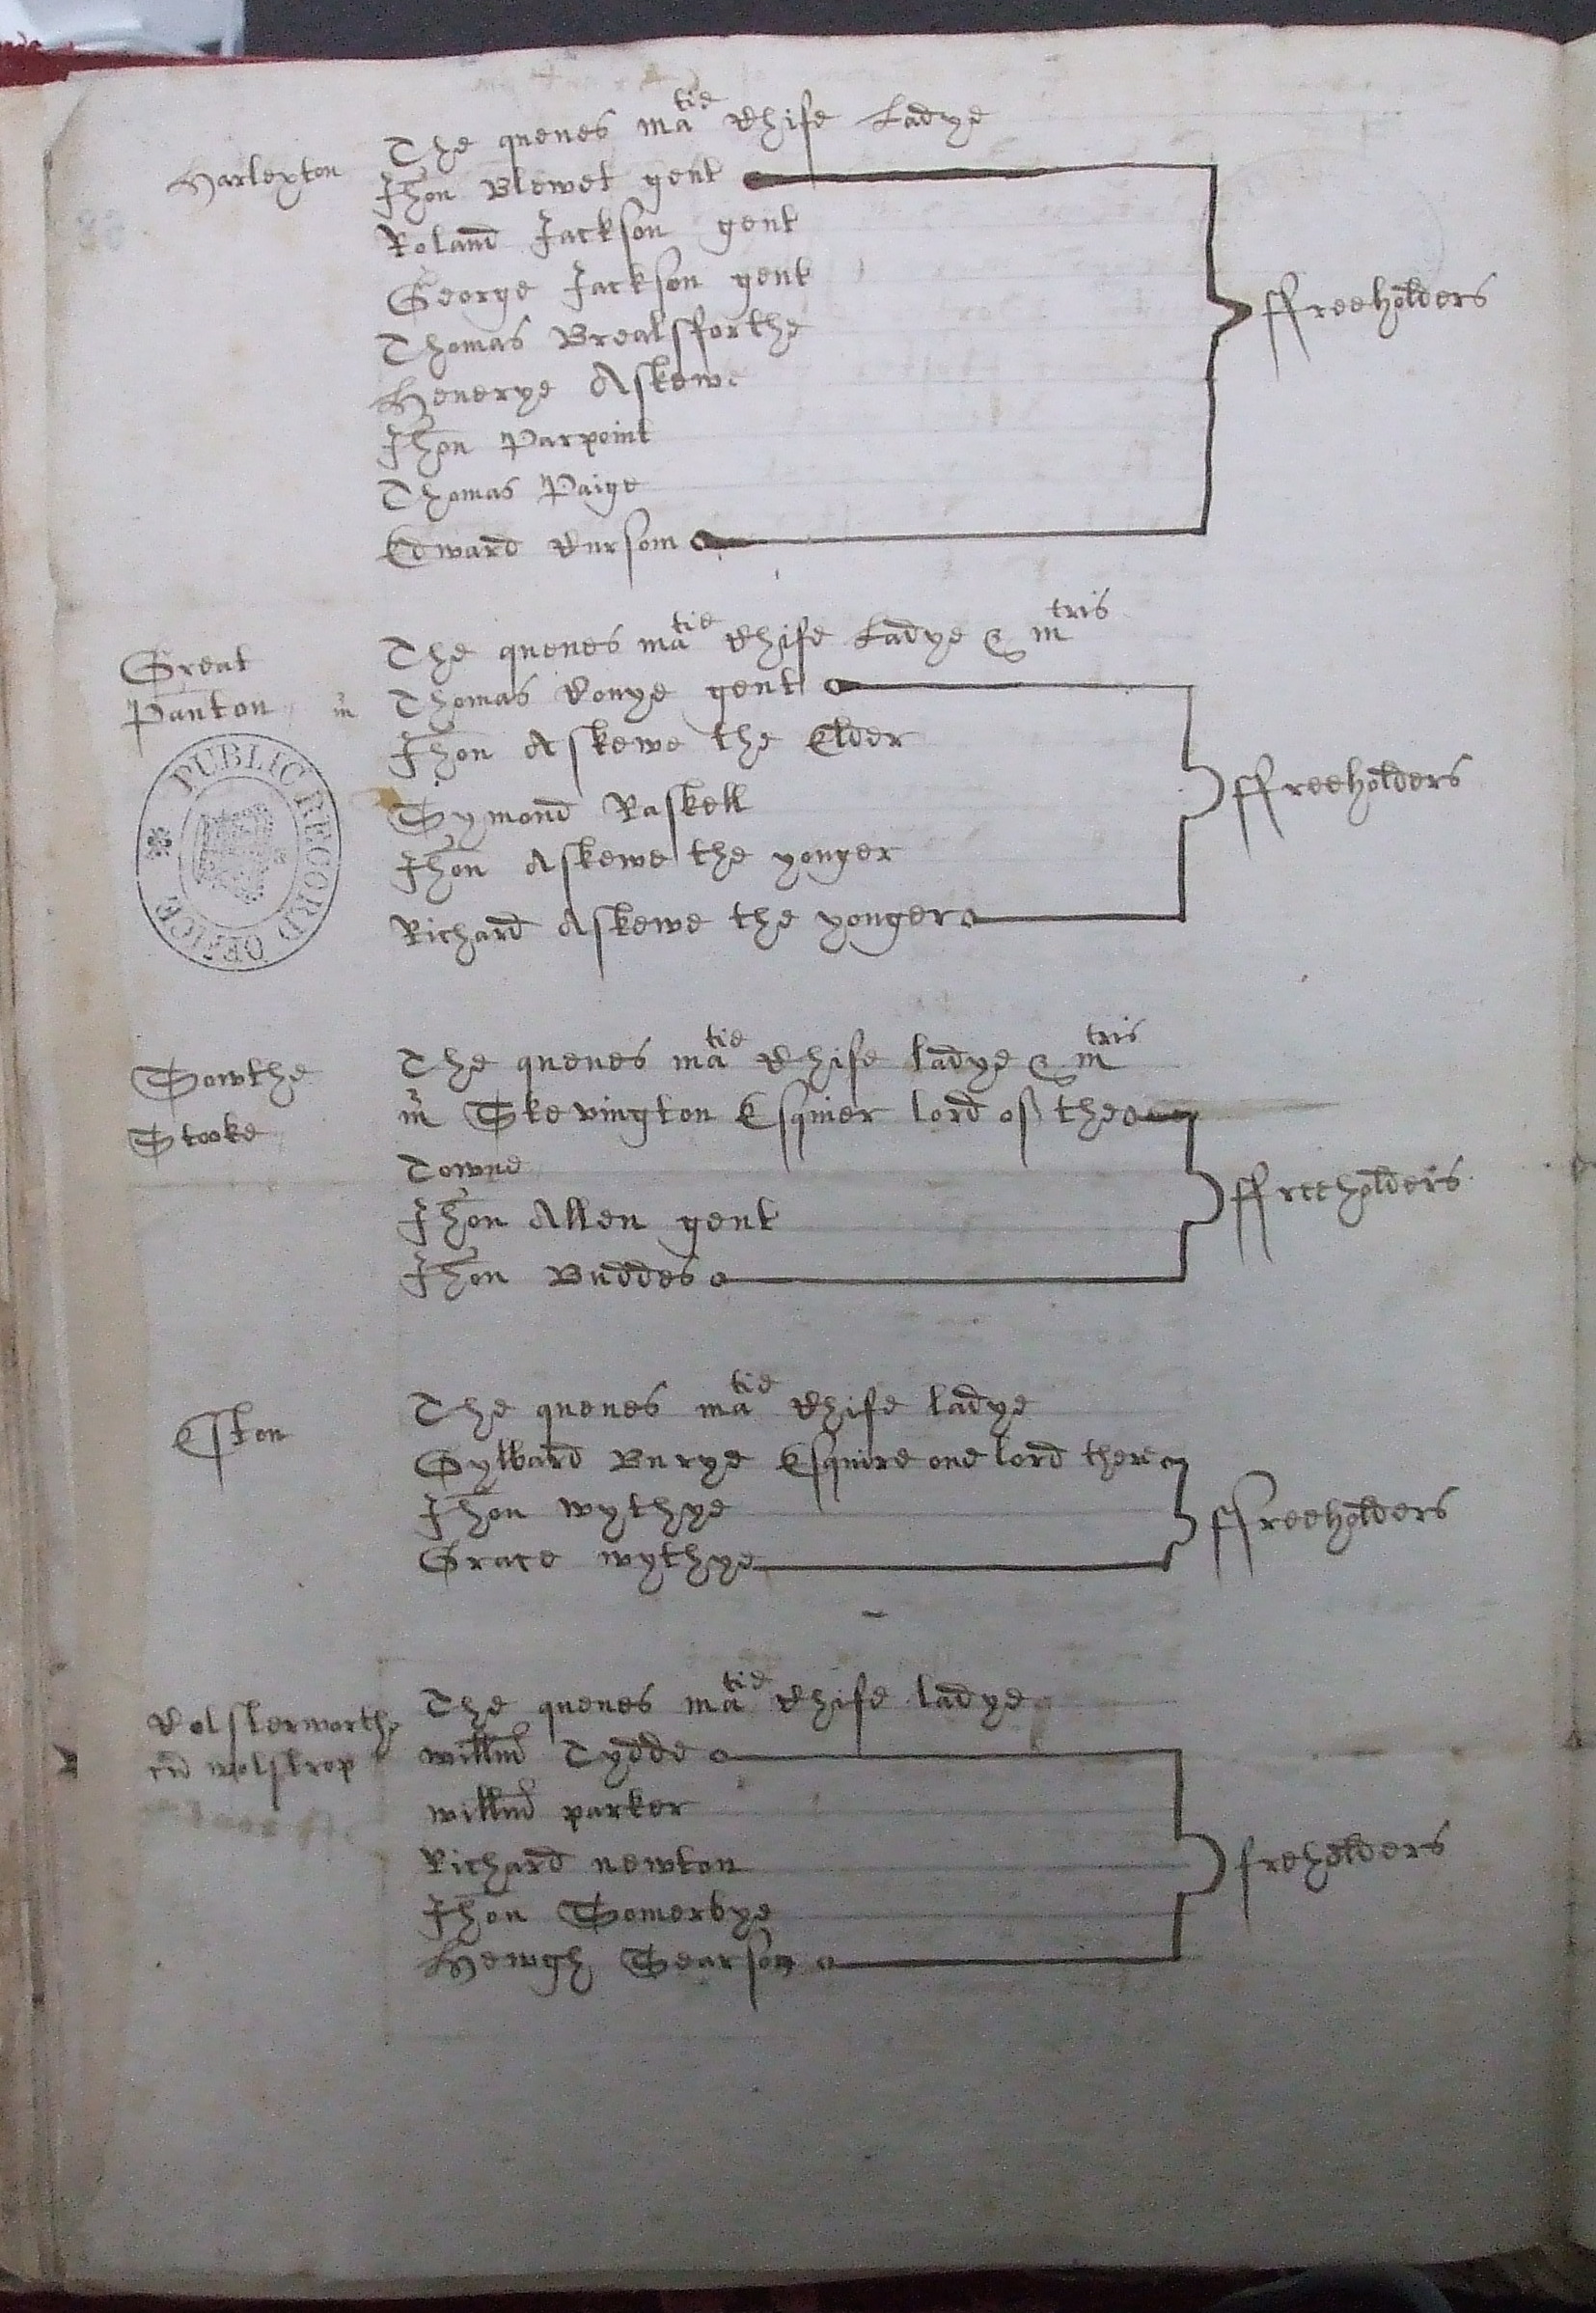 Harlexton
The quenes matie Chife Ladye
Jhon Blewet gent
Roland Jackson gent
George Jackson gent
Thomas Brealsforthe
Henerye Askewe
Jhon Parpoint
Thomas Paige
Edward Cursom
ffreeholders
Great
Panton
The quenes matie Chife Ladye & mtris
mr Thomas Conye gent
Jhon Askewe the Elder
Symond Raskell
Jhon Askewe the yonger
Richard Askewe the yonger
ffreeholders
Sowthe
Stooke
The quenes matie Chife ladye & mtris
mr Skevington Esquier lord of the
Towne
Jhon Allen gent
Jhon Buddes
ffreeholders
Eston
The quenes matie Chife ladye
Gylbard Burye Esquire one lord there
Jhon wythye
Grace wythye
ffreeholders
Colsterworth
and wolstrop
The quenes matie Chife ladye
willm Tydde
willm parker
Richard newton
Jhon Somerbye
Hewgh Searson
freholders
PUBLIC RECORD OFFICE